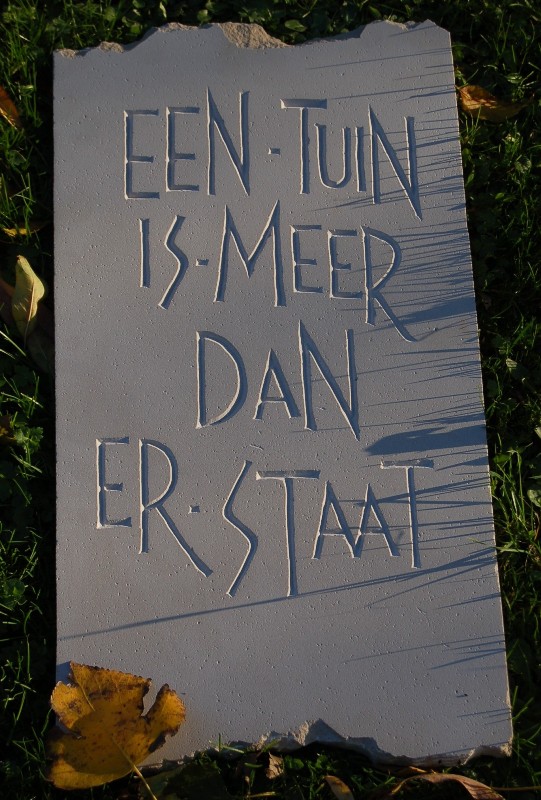 EEN·TUIN
IS·MEER
DAN
ER·STAAT